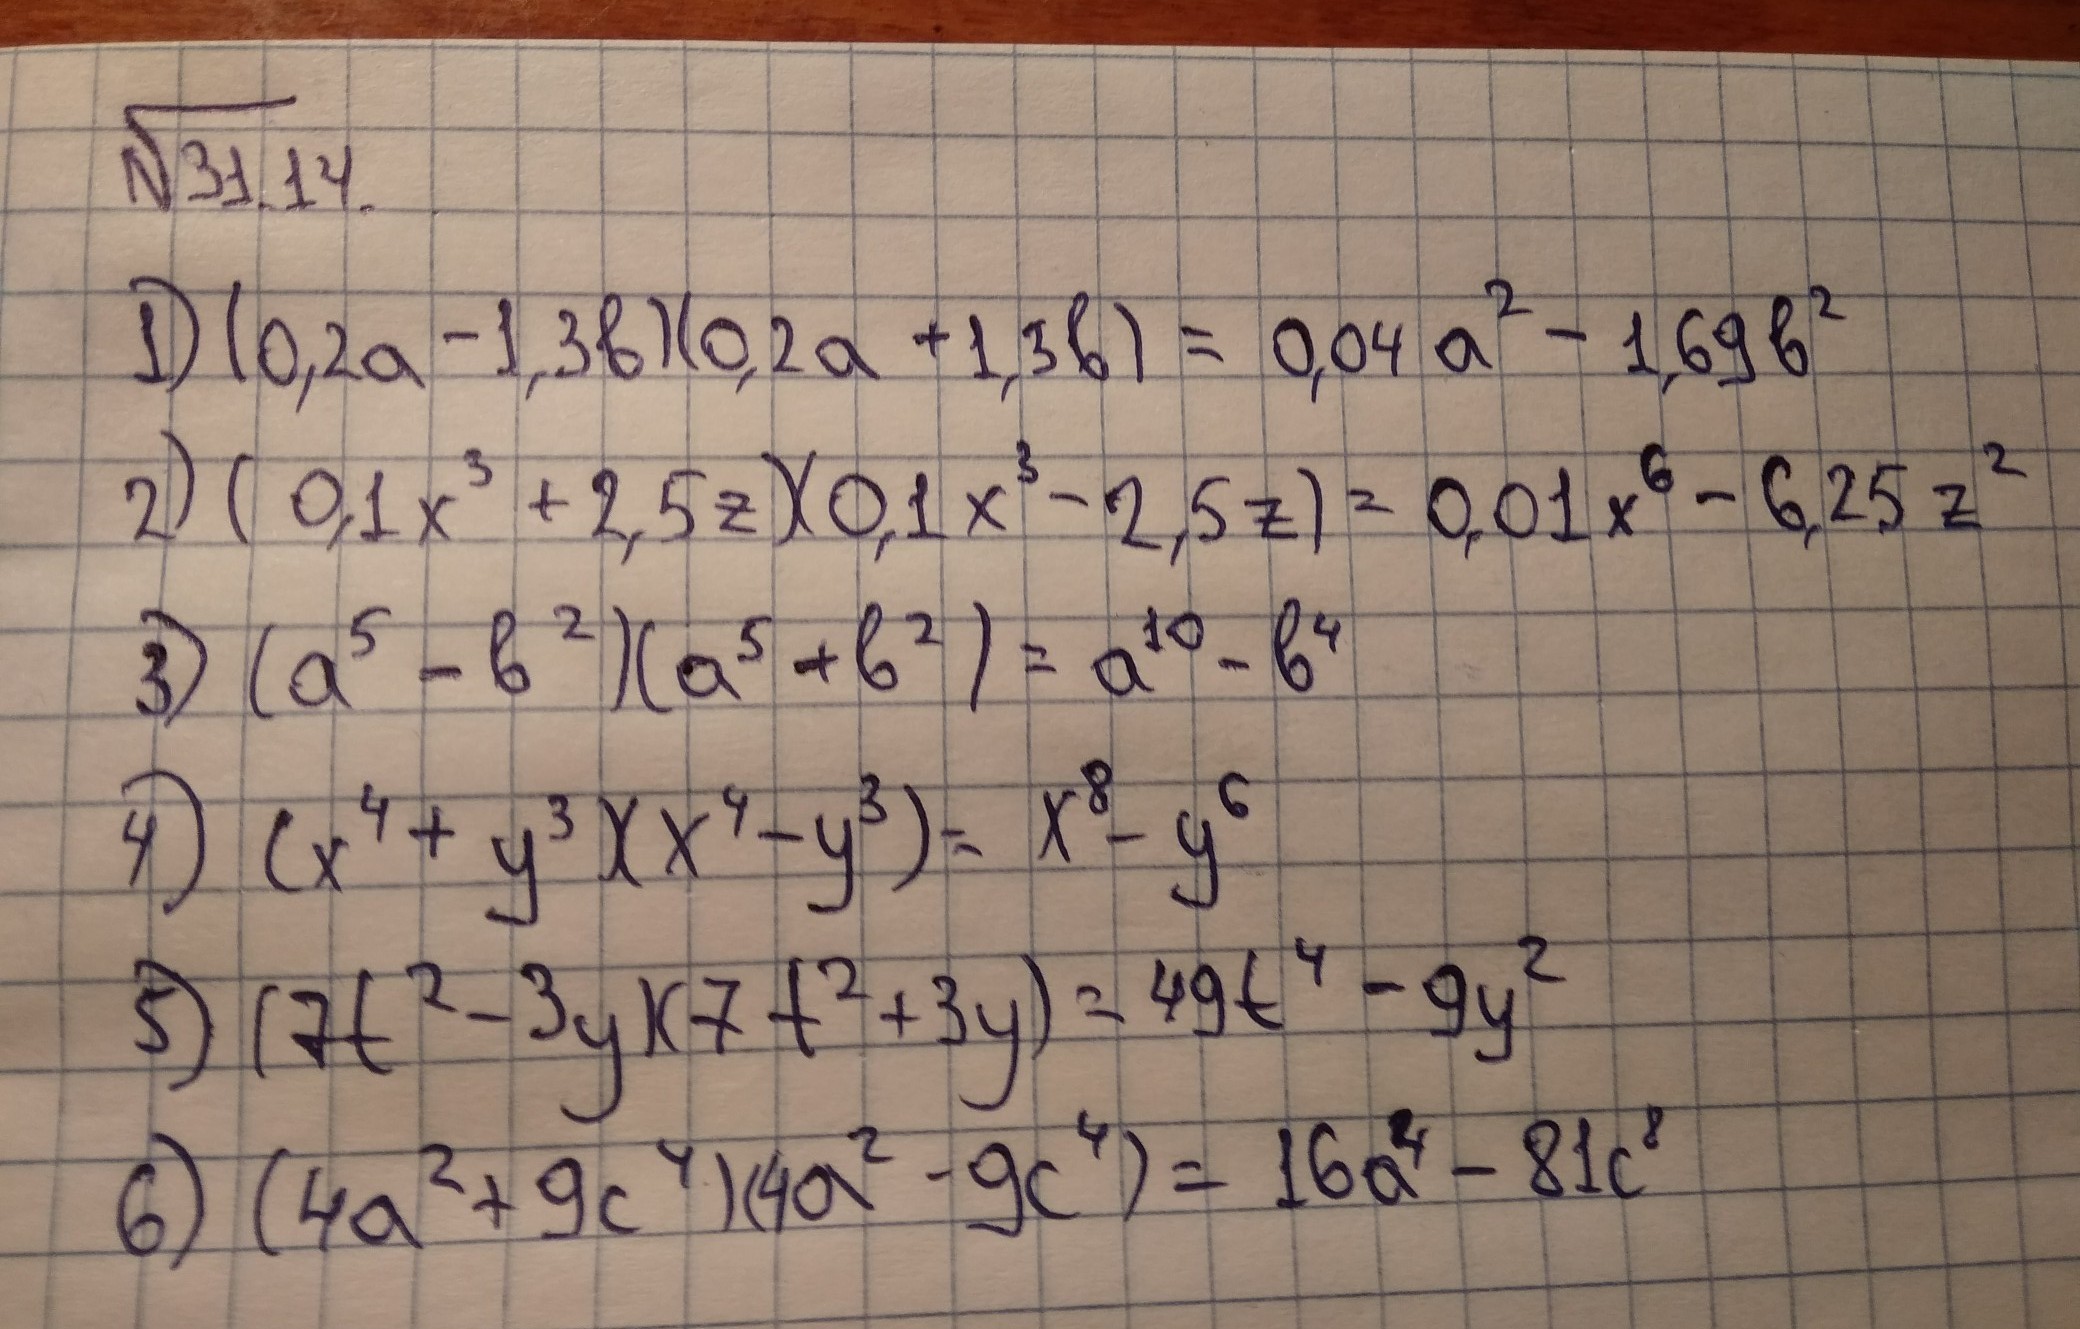 №31.14.
1) (0,2a - 1,3b)(0,2a + 1,3b) = 0,04a² - 1,69b²
2) (0,1x³ + 2,5z)(0,1x³ - 2,5z) = 0,01x⁶ - 6,25z²
3) (a⁵ - b²)(a⁵ + b²) = a¹⁰ - b⁴
4) (x⁴ + y³)(x⁴ - y³) = x⁸ - y⁶
5) (7t² - 3y)(7t² + 3y) = 49t⁴ - 9y²
6) (4a² + 9c⁴)(4a² - 9c⁴) = 16a⁴ - 81c⁸